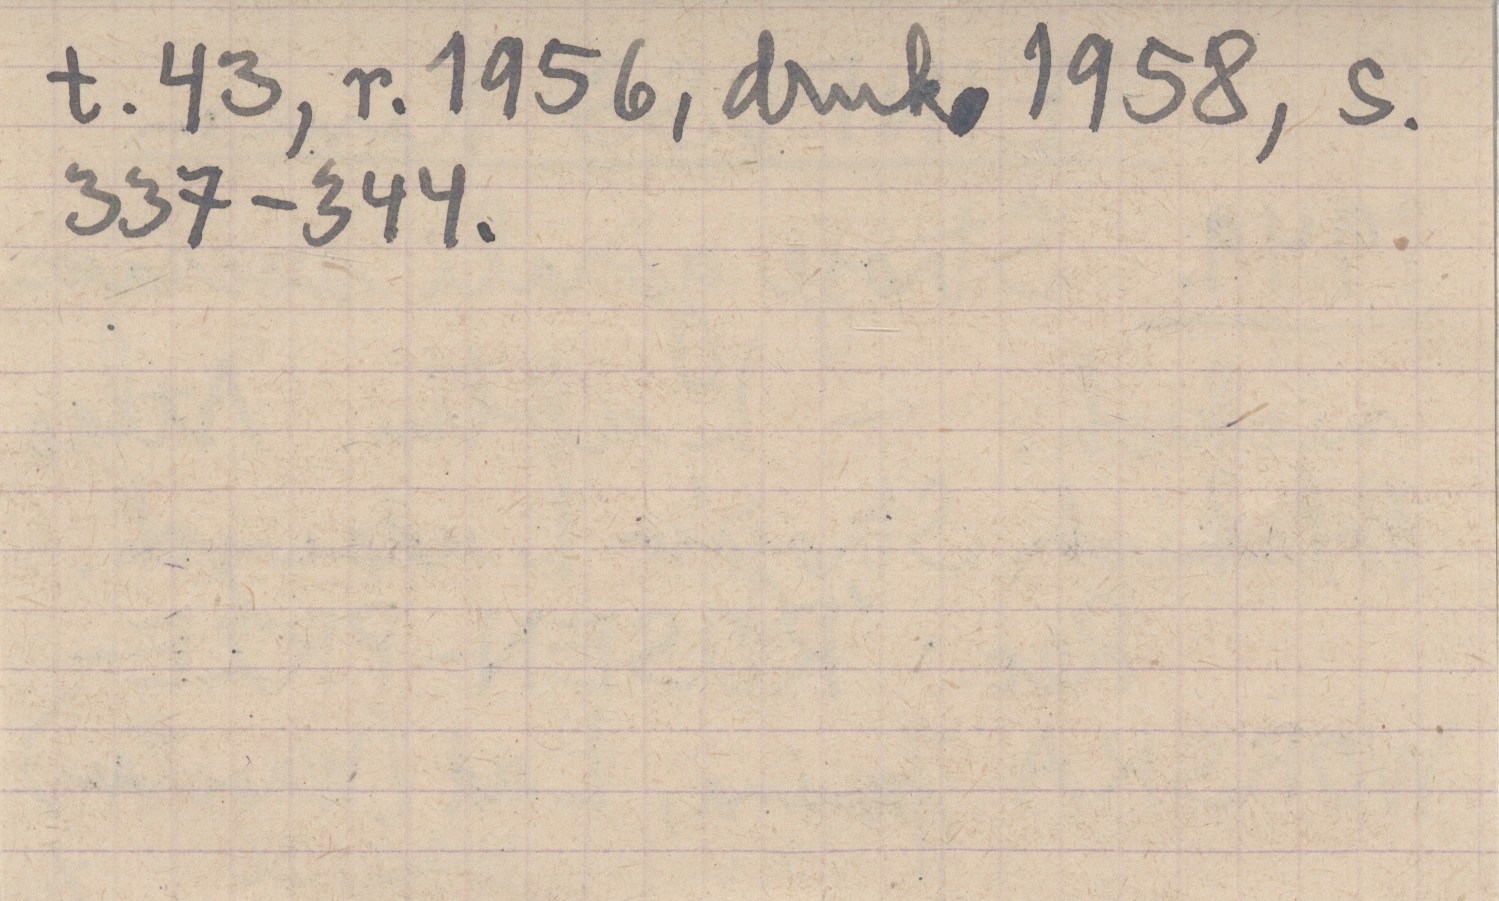 t. 43, r. 1956, druk. 1958, s.
337-344.